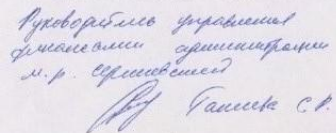 Руководитель управления
финансами администрации
м. р. Сергиевский
С. Р.